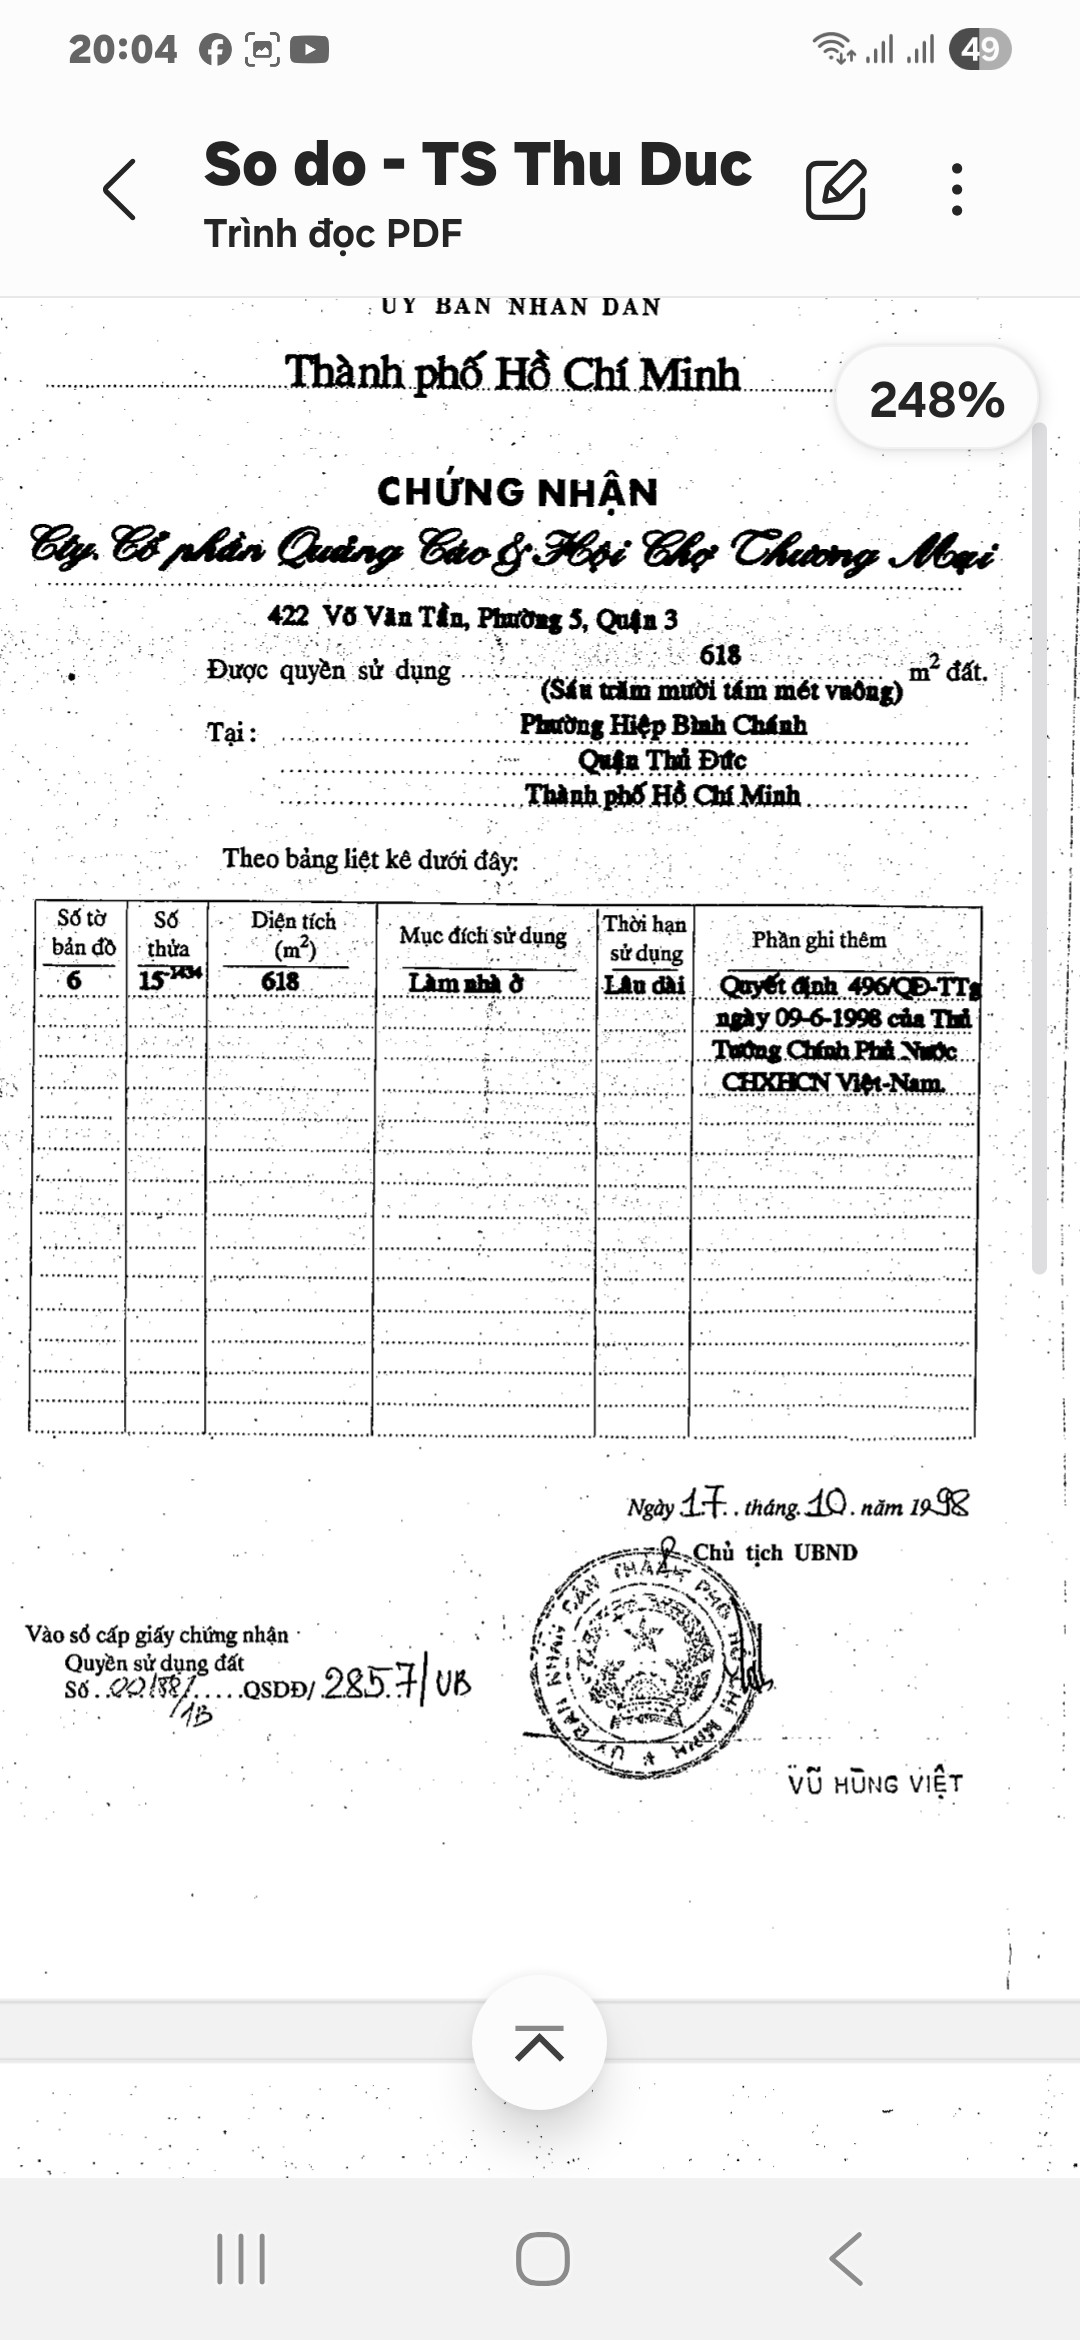 20:04
49
So do - TS Thu Duc
Trình đọc PDF
ỦY BAN NHÂN DÂN
Thành phố Hồ Chí Minh
248%
CHỨNG NHẬN
Cty. Cổ phần Quảng Cáo & Hội Chợ Thương Mại
422 Võ Văn Tần, Phường 5, Quận 3
Được quyền sử dụng 618 m² đất.
(Sáu trăm mười tám mét vuông)
Tại: Phường Hiệp Bình Chánh
Quận Thủ Đức
Thành phố Hồ Chí Minh
Theo bảng liệt kê dưới đây:
Số tờ bản đồ
Số thửa
Diện tích (m²)
Mục đích sử dụng
Thời hạn sử dụng
Phần ghi thêm
6 15-1434 618 Làm nhà ở Lâu dài Quyết định 496/QĐ-TTg
ngày 09-6-1998 của Thủ
Tướng Chính Phủ Nước
CHXHCN Việt-Nam.
Ngày 17 . . tháng. 10 . năm 1998
Chủ tịch UBND
ỦY BAN NHÂN DÂN THÀNH PHỐ HỒ CHÍ MINH
Vào sổ cấp giấy chứng nhận
Quyền sử dụng đất
Số QSDĐ/ 2857/UB
/1B
VŨ HÙNG VIỆT